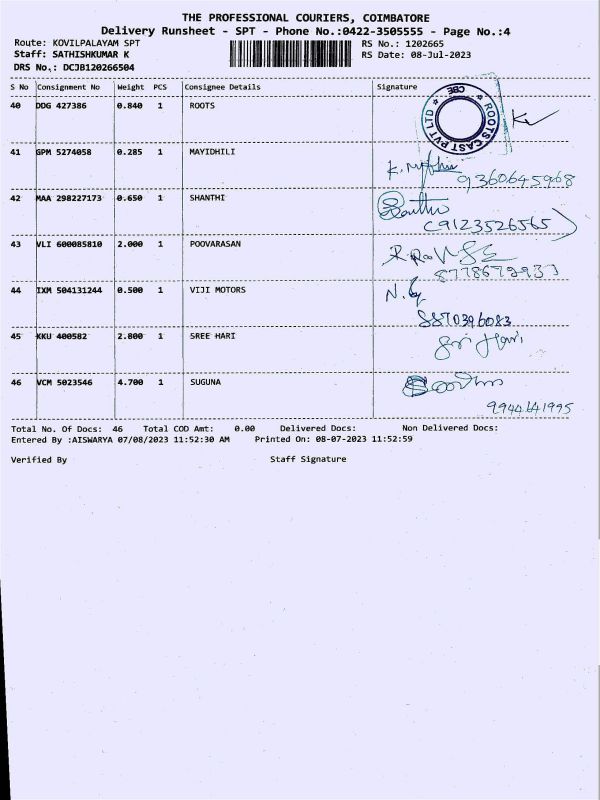 THE PROFESSIONAL COURIERS, COIMBATORE
Delivery Runsheet - SPT - Phone No.:0422-3505555 - Page No.:4
Route: KOVILPALAYAM SPT RS No.: 1202665
Staff: SATHISHKUMAR K RS Date: 08-Jul-2023
DRS No.: DCJB120266504
S No Consignment No Weight PCS Consignee Details Signature
40 DDG 427386 0.840 1 ROOTS
ROOTS CAST PVT LTD * CBE *
41 GPM 5274058 0.285 1 MAYIDHILI
9360645968
42 MAA 298227173 0.650 1 SHANTHI
C9123526565
43 VLI 600085810 2.000 1 POOVARASAN
44 IXM 504131244 0.500 1 VIJI MOTORS
8870396083
45 KKU 400582 2.800 1 SREE HARI
Sri Hari
46 VCM 5023546 4.700 1 SUGUNA
9944641995
Total No. Of Docs: 46 Total COD Amt: 0.00 Delivered Docs: Non Delivered Docs:
Entered By :AISWARYA 07/08/2023 11:52:30 AM Printed On: 08-07-2023 11:52:59
Verified By Staff Signature